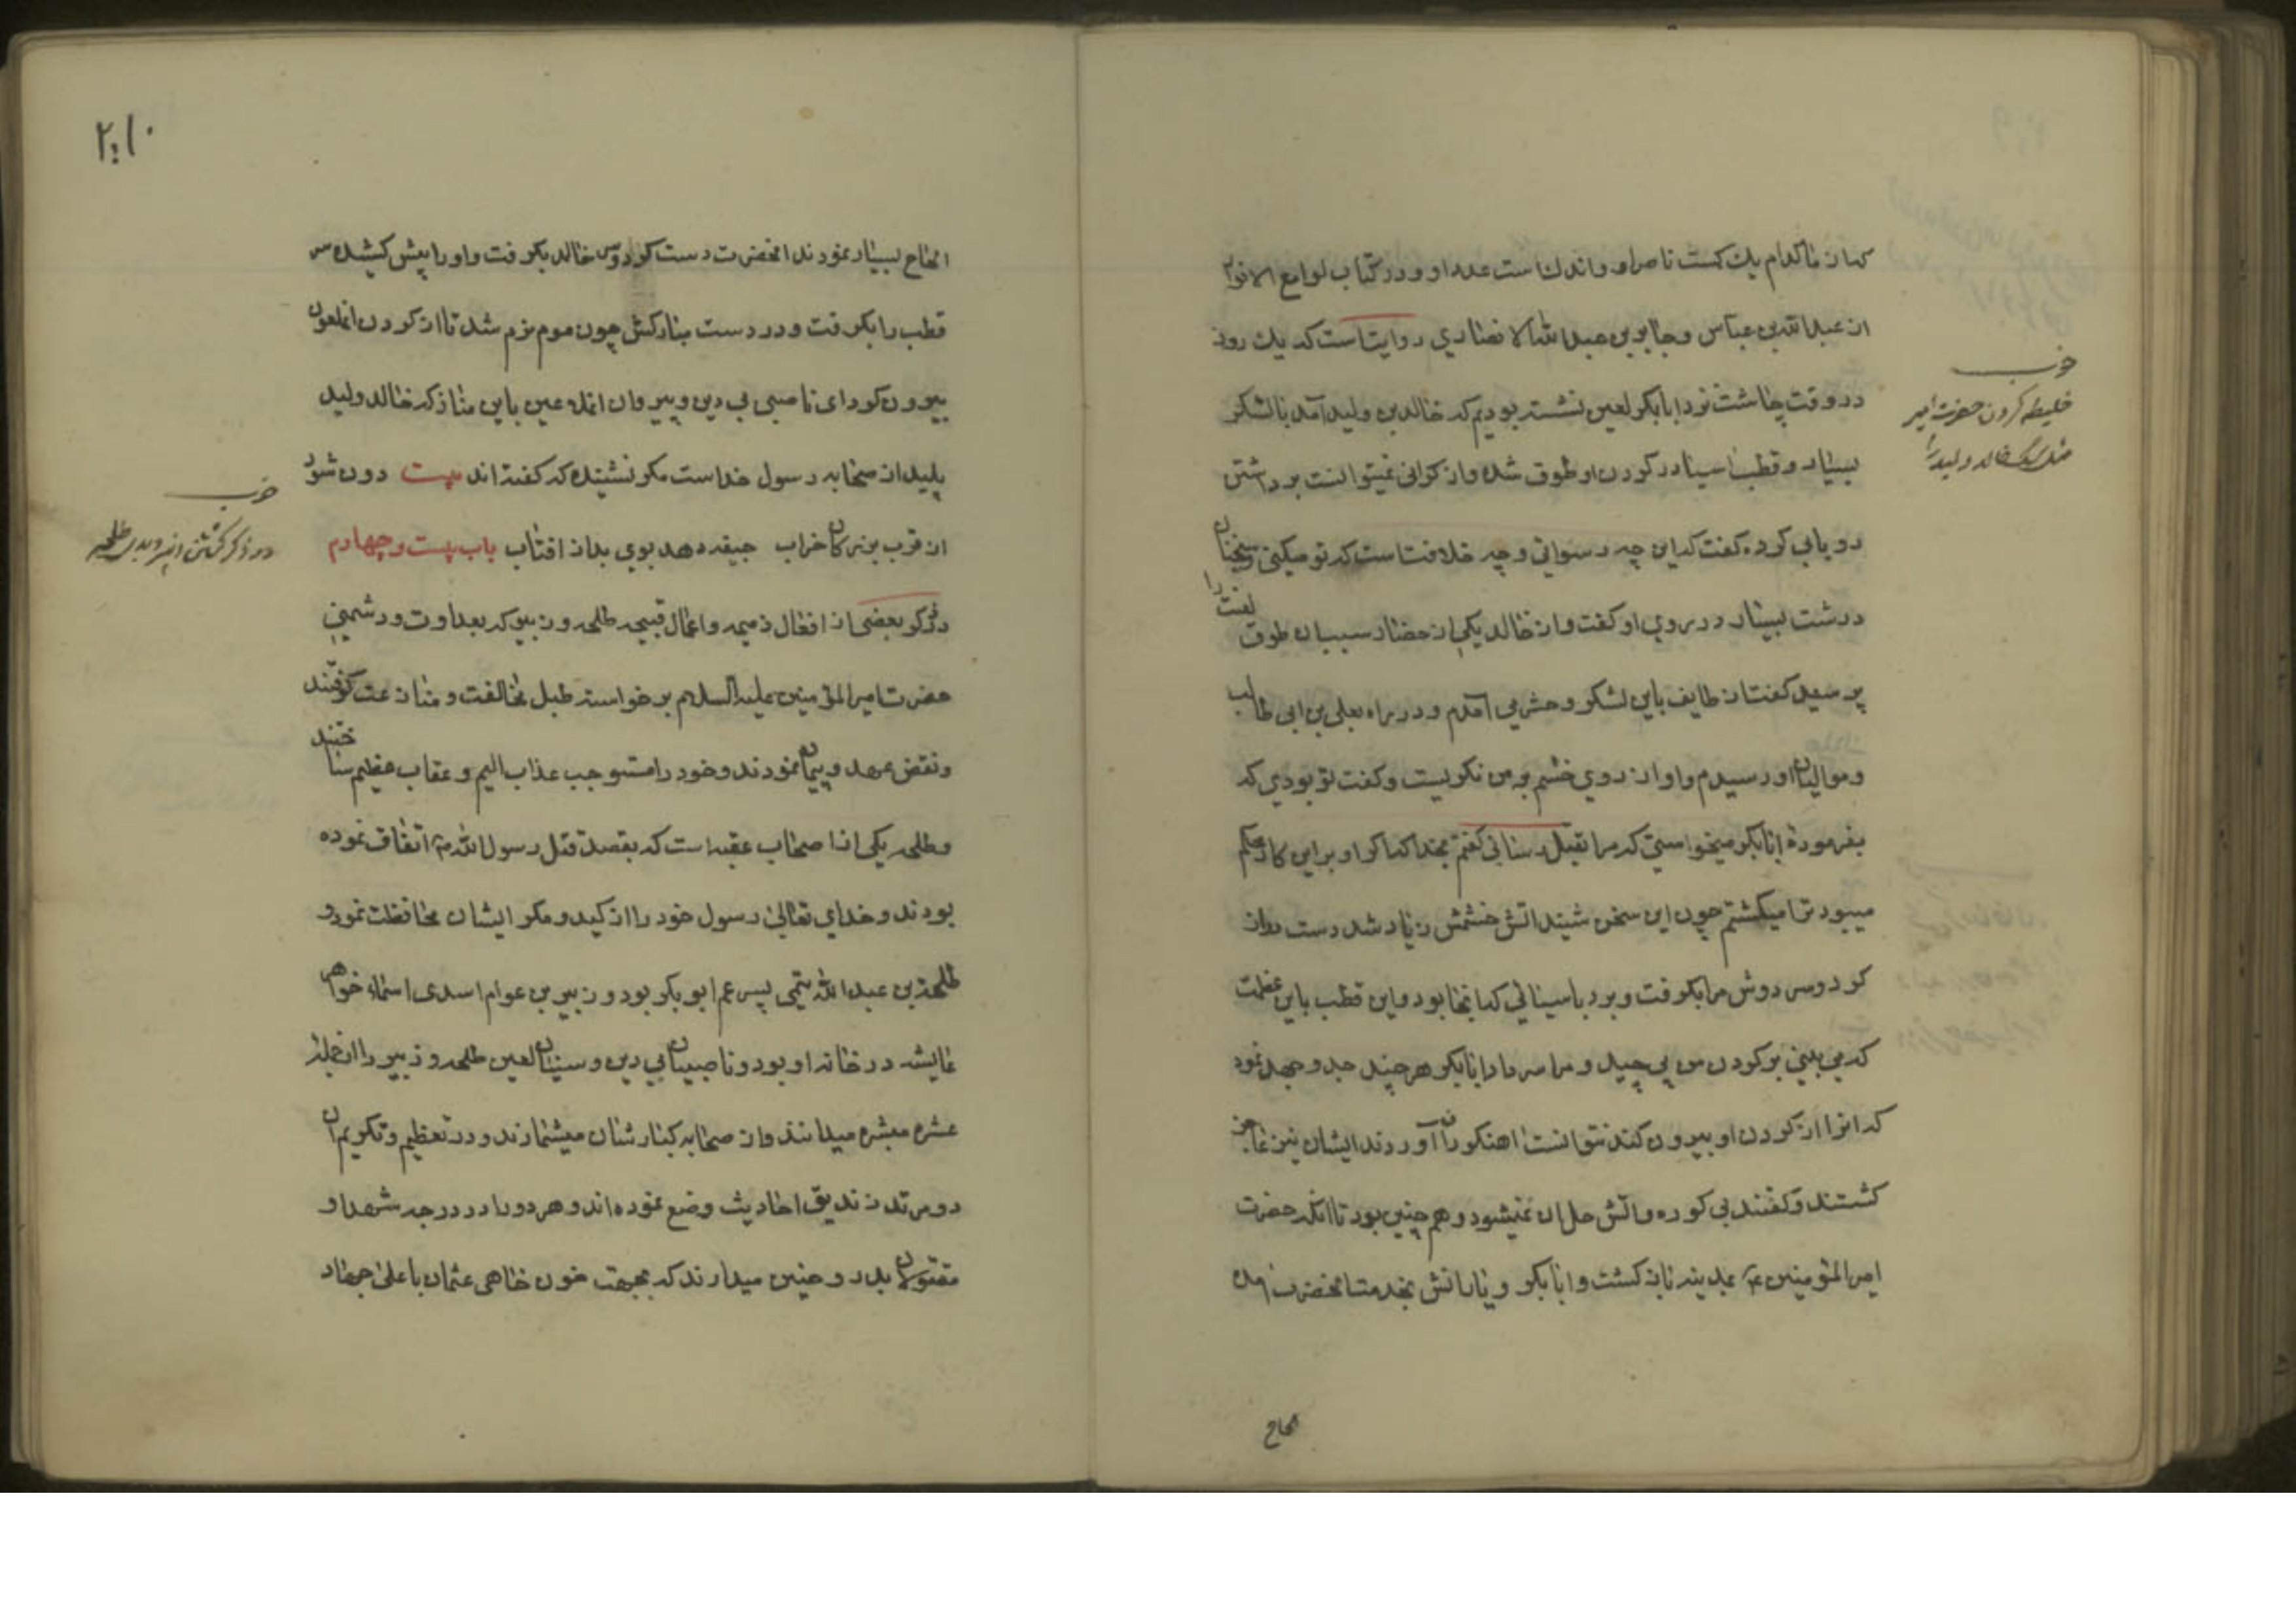 که از ما کدام یک کمست ناصر او و اندک است عدد او و در کتاب لوامع الانوار
از عبدالله بن عباس و جابر بن عبدالله الانصاری روایتست که یک روز
در وقت چاشت نزد ابابکر لعین نشسته بودیم که خالد بن ولید آمد با لشکر
بسیار و قطب آسیا در کردن او طوق شده و از کرانی نمیتوانست برداشتن
رو بابی کرده کفت که این چه رسوائی و چه خلافتست که تو میکنی و سخنان
درشت بسیار در روی او کفت و از خالد یکی از حضار سبب ان طوق لعنت را
پرسید کفت از طایف باین لشکر و حشر می آمدم و در راه بعلی بن ابی طالب
و موالیان او رسیدم و او از روی خشم به من نکریست و کفت تو بودی که
بفرموده ابابکر میخواستی که مرا بقتل رسانی کفتم بخدا که اکر او بر این کار محکم
میبود ترا میکشتم چون این سخن شنید اتش خشمش زیاد شد دست دراز
کرد و سر دوش مرا بکرفت و برد باسیائی که انجا بود و این قطب باین عظمت
که می بینی بر کردن من پیچید و مرا سر داد ابابکر هر چند جد و جهد نمود
که انرا از کردن او بیرون کند نتوانست اهنکران آوردند ایشان نیز عاجز
کشتند و کفتند بی کوره و آتش حل ان نمیشود و هم چنین بود تا انکه حضرت
امیرالمؤمنین ع بمدینه باز کشت و ابابکر و یارانش بخدمت انحضرت آمده
الحاح
خرب
خلیطه کردن حضرت امیر
خالد ولید را
۲۱۰
الحاح بسیار نمودند انحضرت دست کرد و دوش خالد بکرفت و او را پیش کشیده سر
قطب را بکرفت و در دست مبارکش چون موم نرم شد تا از کردن انملعون
بیرون کرد ای ناصبی بی دین و پیروان انملاعین باین مناز که خالد ولید
پلید از صحابه رسول خداست مکر نشنیده که کفته اند بیت دون شود
از قرب بزرکان خراب جیفه دهد بوی بد از افتاب باب بیست و چهارم
در ذکر بعضی از افعال ذمیمه و اعمال قبیحه طلحه و زبیر که بعداوت و دشمنی
حضرت امیرالمؤمنین علیه السلام برخواسته طبل مخالفت و منازعت کوفتند
و نقض عهد و پیمان نمودند و خود را مستوجب عذاب الیم و عقاب عظیم ساختند
و طلحه یکی از اصحاب عقبه است که بقصد قتل رسول الله ص اتفاق نموده
بودند و خدای تعالی رسول خود را از کید و مکر ایشان محافظت نمود و
طلحة بن عبدالله تیمی پسر عم ابو بکر بود و زبیر بن عوام اسدی اسماء خواهر
عایشه در خانه او بود و ناصبیان بی دین و سنیان لعین طلحه و زبیر را از جمله
عشره مبشره میدانند و از صحابه کبار شان میشمارند و در تعظیم و تکریم ان
دو مرتد زندیق احادیث وضع نموده اند و هر دو را در درجه شهدا و
مقتولان بدر و حنین میدارند که بجهت خون خاهی عثمان با علی جهاد
خرب
در ذکر طلحه